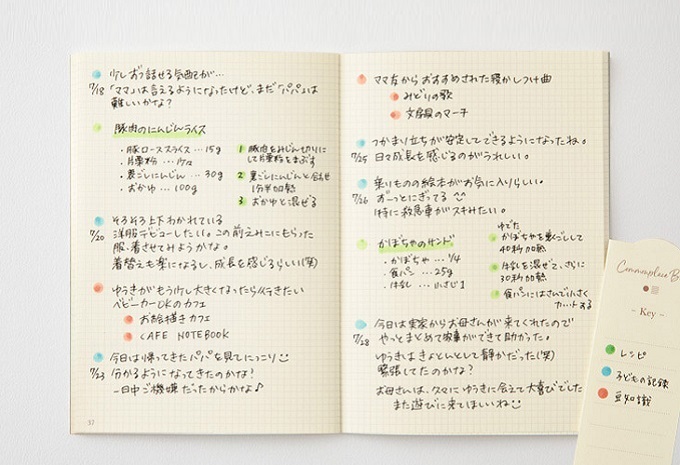 少しおつ話せる気配が…
7/18 「ママ」は言えるようになったけど、まだ「パパ」は
難しいかな？
豚肉のにんじんライス
・豚ローススライス…15g
・片栗粉…少々
・裏ごしにんじん…30g
・おかゆ…100g
1 豚肉をみじん切りに
して片栗粉をまぶす
2 裏ごしにんじんと合せ
1分半加熱
3 おかゆと混ぜる
そろそろ上下わかれている
7/20 洋服デビューしたい。この前えみこにもらった
服、着させてみようかな。
着替えも楽になるし、成長を感じるらしい(笑)
ゆうきがもう少し大きくなったら行きたい
ベビーカーOKのカフェ
お絵描きカフェ
CAFE NOTEBOOK
今日は帰ってきたパパを見てにっこり
7/23 分かるようになってきたのかな？
一日中ご機嫌だったからかな♪
37
ママ友からおすすめされた寝かしつけ曲
みどりの歌
文房具のマーチ
つかまり立ちが安定してできるようになったね。
7/25 日々成長を感じるのがうれしい。
乗りものの絵本がお気に入りらしい。
7/26 ずーっとにぎってる ^^
特に救急車がスキみたい。
かぼちゃのサンド
・かぼちゃ…1/4
・食パン…25g
・牛乳…小さじ1
ゆでた
かぼちゃを裏ごしして
40秒加熱
牛乳を混ぜて、さらに
30秒加熱
食パンにはさんで小さく
カットする
今日は実家からお母さんが来てくれたので
7/28 やっとまとめて家事ができて助かった。
ゆうきはきょとんとして静かだった(笑)
緊張してたのかな？
お母さんは、久々にゆうきに会えて大喜びでした
また遊びに来てほしいね
Commonplace B
- Key -
レシピ
子どもの記録
豆知識